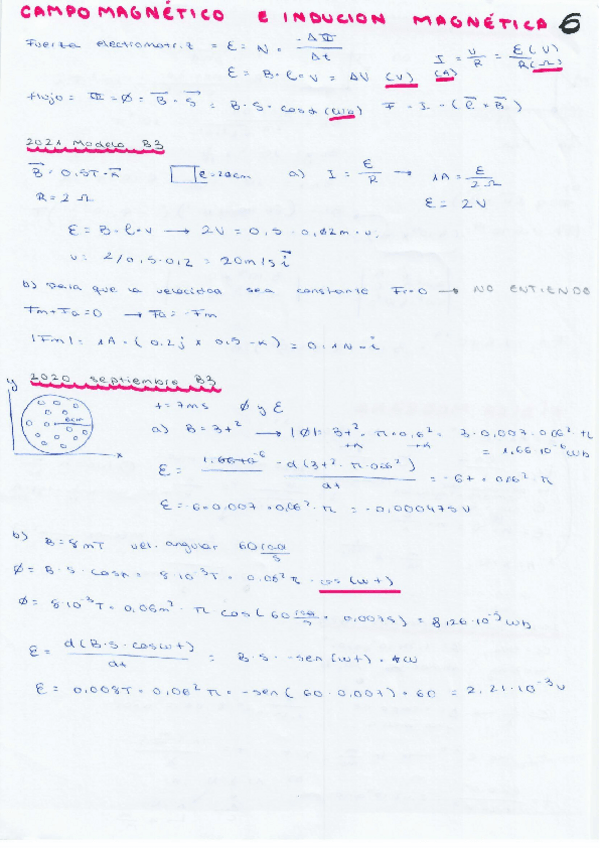 CAMPO MAGNÉTICO E INDUCION MAGNÉTICA 6
Fuerza electromotriz = ε = N · -ΔΦ/Δt
I = V/R = ε(V)/R(Ω) (A)
ε = B · l · v = ΔV (V)
flujo = Φ = ϕ = B · S = B · S · cosα (Wb) F = I · (l × B)
2021 Modelo B3
B = 0,5T · k l=20cm a) I = ε/R → 1A = ε/2Ω
R = 2 Ω ε = 2V
ε = B · l · v → 2V = 0,5 · 0,02m · v.
v = 2/0,5·0,2 = 20m/s i
b) Para que la velocidad sea constante Fr=0 → NO ENTIENDO
Fm+Fa=0 → Fa = -Fm
|Fm| = 1A · (0.2j × 0.5 -k) = 0.1N -i
2020 septiembre B3
y
6cm
x
t=7ms ϕ y ε
a) B=3t² → |ϕ| = 3t² · π · 0,6² = 3·0,007·0.06² π
= 1.66·10⁻⁶ Wb
ε = -d(3t² · π · 0.06²)/dt = -6t · 0.06² · π
ε = -6·0.007·0.06² · π = -0,000475V
b) B=8mT vel. angular 60 rad/s
ϕ = B·S·cosα = 8·10⁻³T · 0.06²π · cos(wt)
ϕ = 8·10⁻³T · 0.06m² · π cos(60 rad/s · 0.007s) = 8,26·10⁻⁵ Wb
ε = d(B·S·coswt)/dt = B·S·-sen(wt)·w
ε = 0.008T · 0.06² π · -sen(60·0.007)·60 = 2,21·10⁻³ V